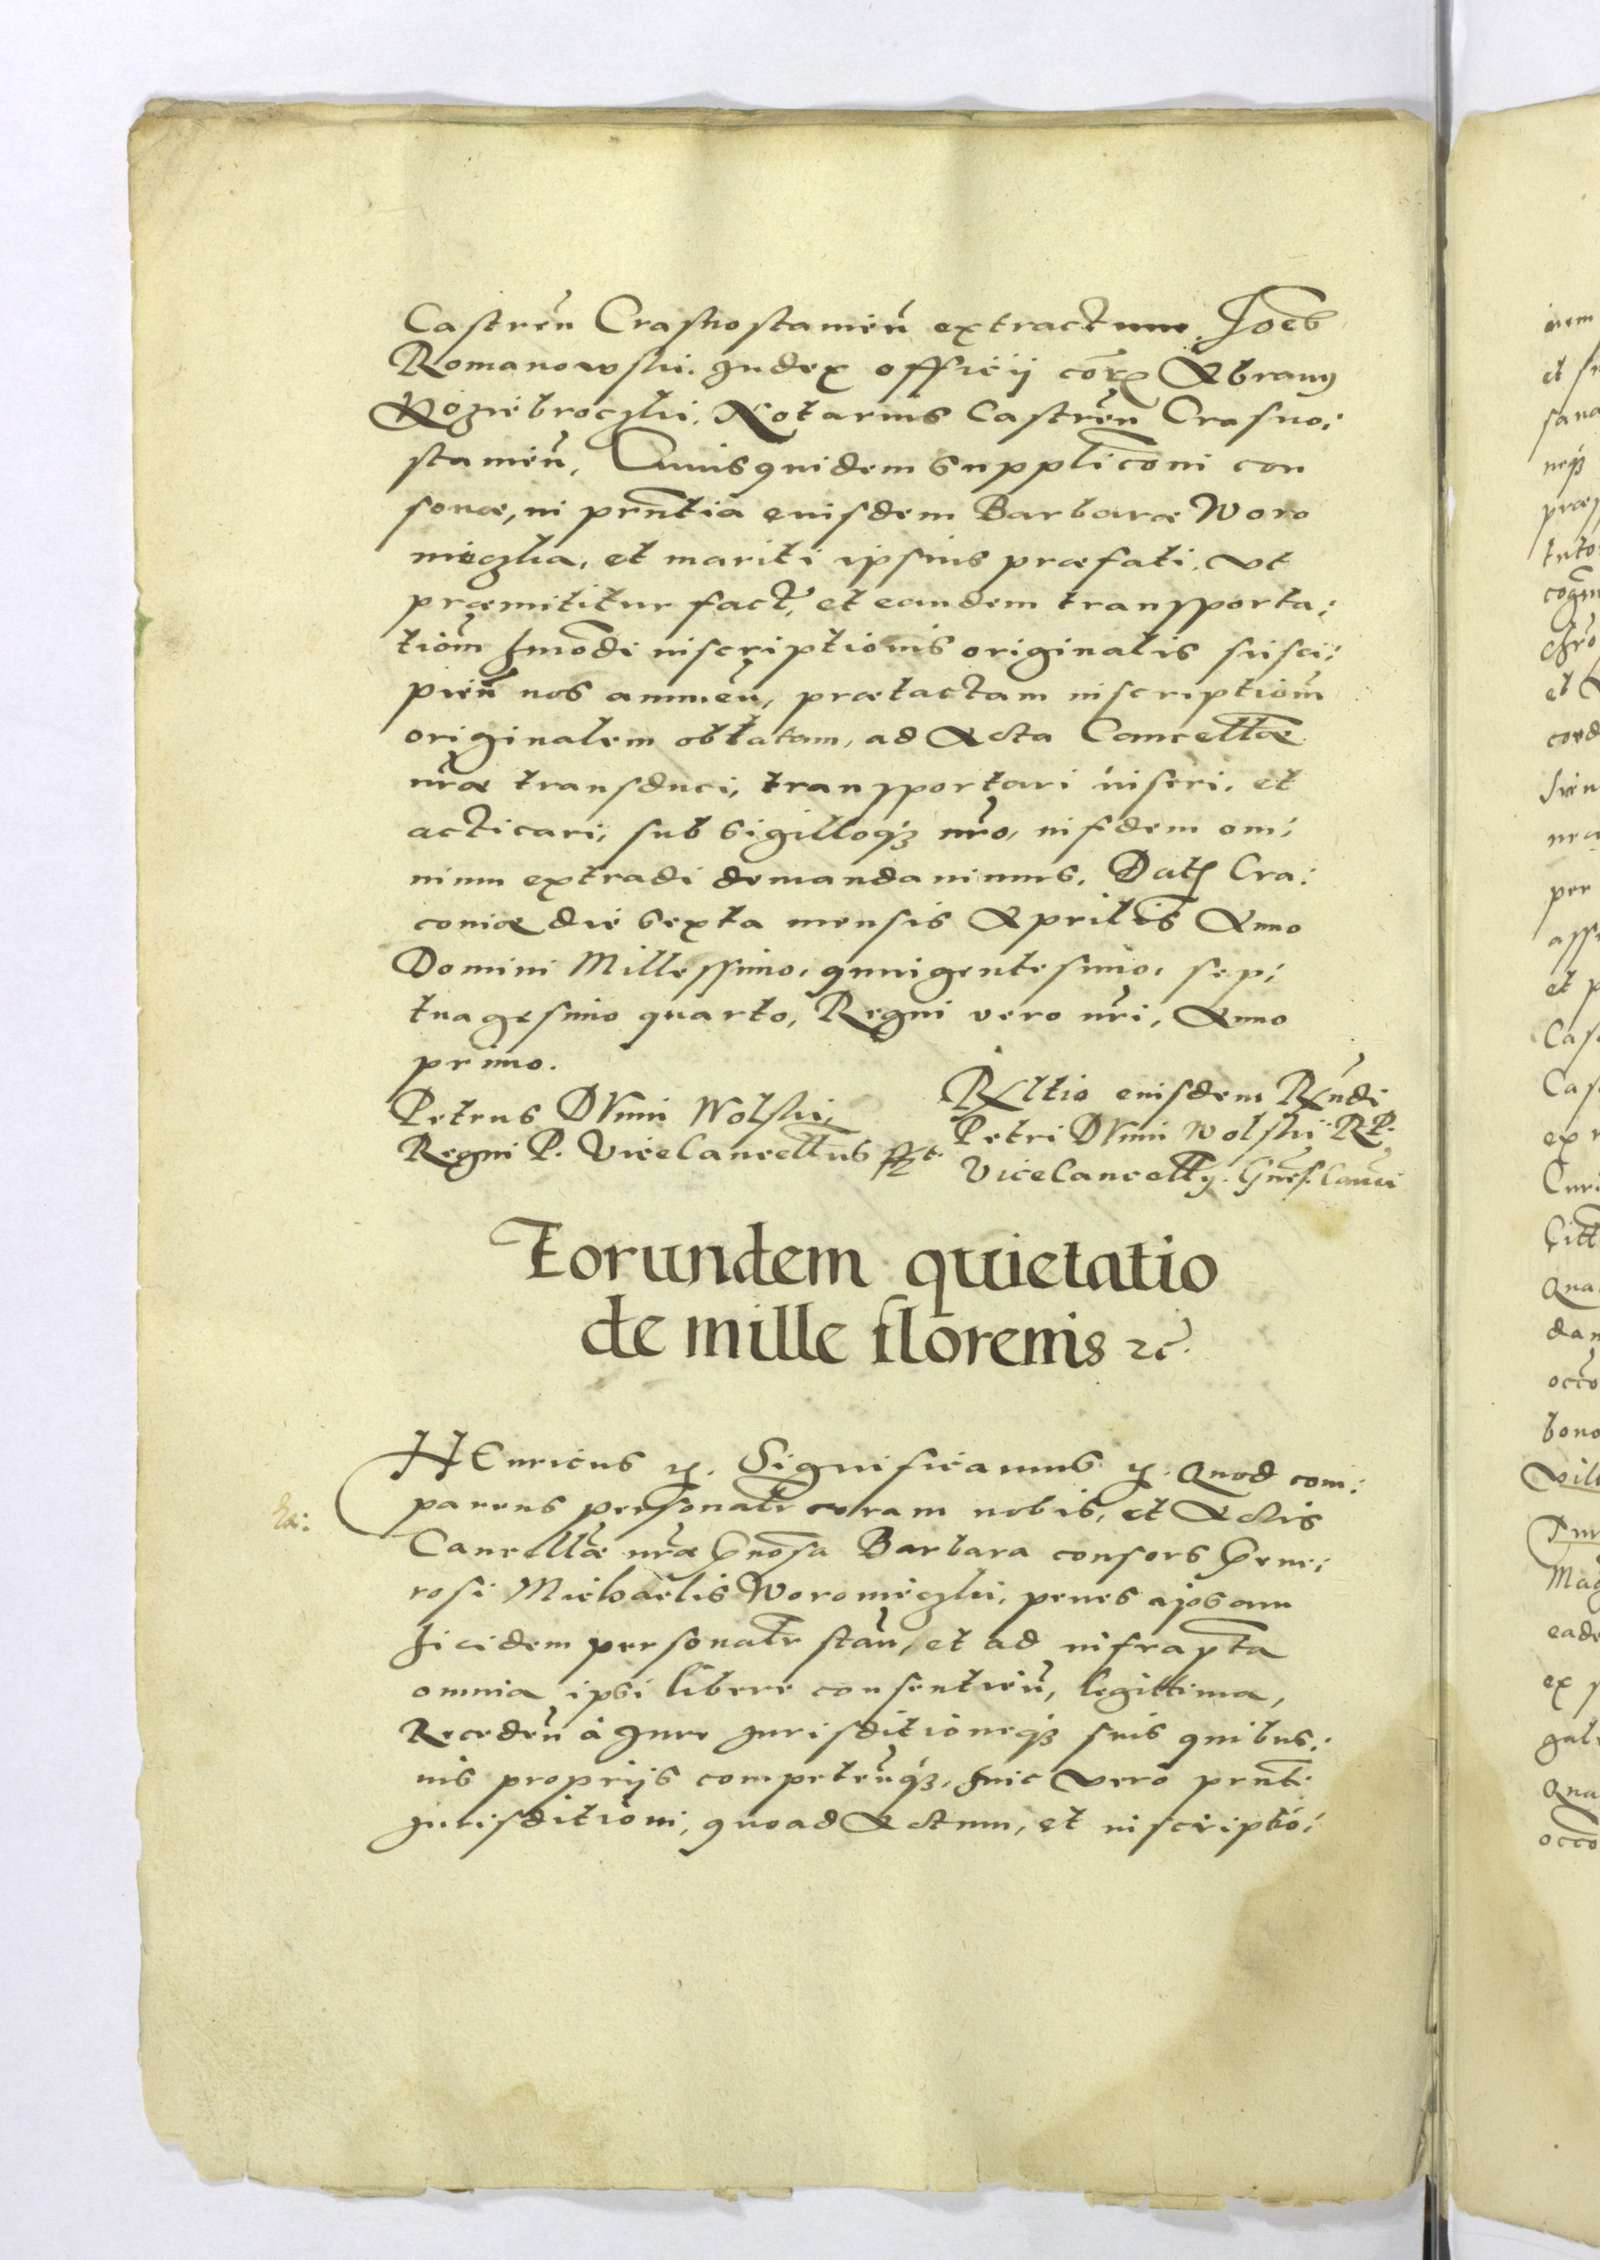 Castreñ Crasnostamieñ extractum. Joēs
Romanowski. Judex officij
Notarius Castreñ Crasno:
stamieñ, Cuiusquidem suppliconi con
sonæ, in prñtia eiusdem Barbaræ Woro
nieczka, et mariti ipsius præfati, vt
præmititur fact, et eandem transporta:
tiom̃ hmõdi inscriptionis originalis suscï:
pieñ nos annueñ, prætactam inscriptiom̃
originalem oblatam, ad Acta Cancellæ
nr̃æ transduci, transportari inseri, et
acticari, sub sigilloqꝫ nr̃o, in fidem om:
nium extradi demandauimus. Dat Cra:
couiæ die sexta mensis Aprilis Anno
Domini Millessimo, quingentesimo, sep:
tuagesimo quarto, Regni vero nr̃i, Anno
primo.
Petrus DVnin Wolski,
Regni P. ViceCancellrius sst.
Rltio eiusdem Rñdi
Petri DVnin Wolskï R.P.
ViceCancellrij.
Eorundem quietatio
de mille florenis ꝛc̃.
HEnricus ꝛc. Significamus ꝛc. Quod com:
parens personalr coram nobis, et Actis
Cancellæ nr̃æ Gñosa Barbara consors Gene:
rosi Michaelis Woronieczki, penes
ibidem personalr stañ, et ad infrapta
omnia ipsi libere consentieñ, legittima,
Recedeñ à Jure Jurisditioneqꝫ suis quibus:
uis proprijs competeñqꝫ, huic vero prñti
Jurisditioni, quoad Actum, et inscriptõ: